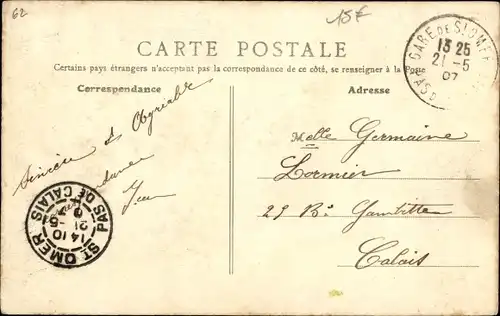 62
15€
CARTE POSTALE
Certains pays étrangers n'acceptant pas la correspondance de ce côté, se renseigner à la Poste
Correspondance
Adresse
GARE DE ST OMER
13 25
21 - 5
07
Sincère et
Jean
ST OMER
PAS DE CALAIS
14 10
21 - 5
Melle Germaine
Lormier
29 Bd Gambetta
Calais